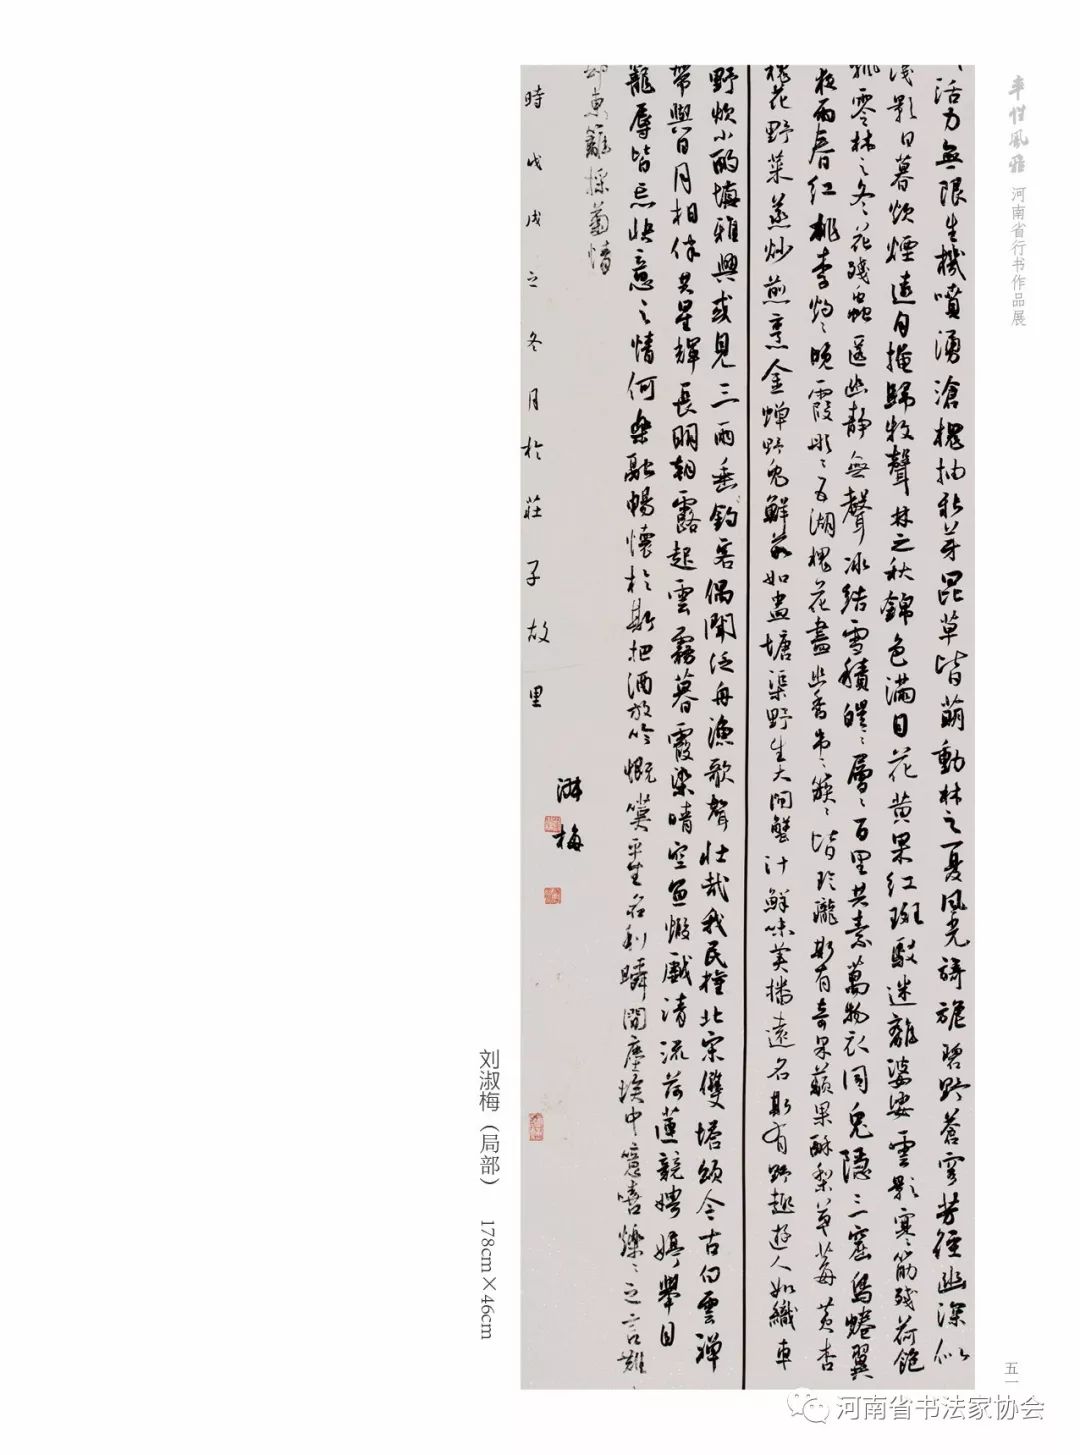 率性风雅 河南省行书作品展
活力無限生機噴湧滄槐抽新芽昆草皆萌動林之夏風光旖旎碧野蒼穹芳徑幽深似
淺影日暮炊煙遠自掩歸牧聲林之秋錦色滿目花黄果紅斑駁迷離婆娑雲影寒筋殘荷飽
飄零林之冬花殘蟲匿幽靜無聲冰結雪積皚皚層層百里共素萬物衣同兔隱三窟鳥蜷翼
夜雨春紅桃李灼灼晚霞彤彤五湖槐花盡幽香串串簇簇皆玲瓏斯有奇果蘋果酥梨草莓黄杏
槐花野菜蒸炒煎烹金蟬野兔鮮蘇如盡塘渠野生大閘蟹汁鮮味美播遠名斯有野趣遊人如織車
野炊小酌增雅興或見三兩垂釣客偶聞泛舟漁歌聲壯哉我民權北宋雙塔頌今古白雲禪
帶與日月相伴共星輝長明朝露起雲霧暮霞染晴空魚蝦戲清流荷蓮競娉婷舉目
寵辱皆忘快意之情何樂融暢懷於斯把酒放吟慨嘆平生名利瞬間塵埃中噫嘻爍爍之言難
却東籬採菊情
時戊戌之冬月於莊子故里
淑梅
刘淑梅（局部） 178cm×46cm
五一
河南省书法家协会